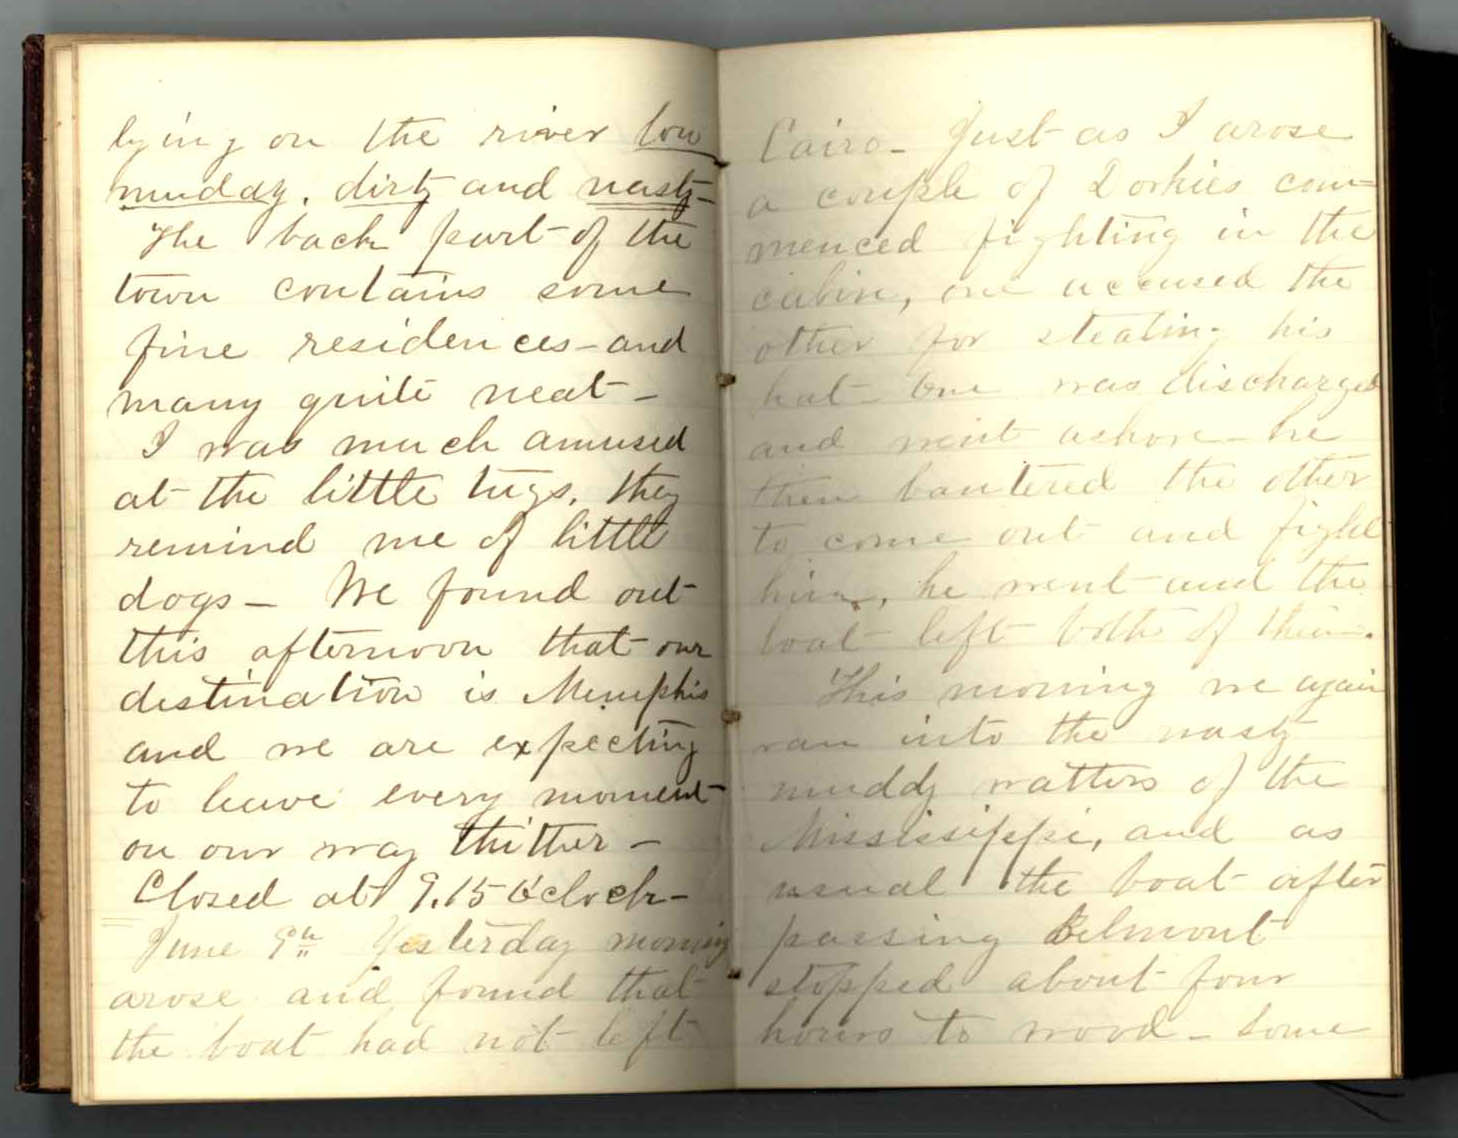 lying on the river low
mudday, dirty and nasty-
The back part of the
town contains some
fine residences - and
many quite neat -
I was much amused
at the little tugs, they
remind me of little
dogs - We found out
this afternoon that our
destination is Memphis
and we are expecting
to leave every moment
on our way thither -
Closed at 9.15 Oclock -
June 9th Yesterday morning
arose and found that
the boat had not left
Cairo - Just as I arose
a couple of Dorkies com=
menced fighting in the
cabin, one accused the
other for stealing his
hat - One was discharged
and went ashore - he
then bantered the other
to come out and fight
him, he went and the
boat left both of them.
This morning we again
ran into the nasty
muddy watters of the
Mississippi, and as
usual the boat after
passing Belmont
stopped about four
hours to wood - Some